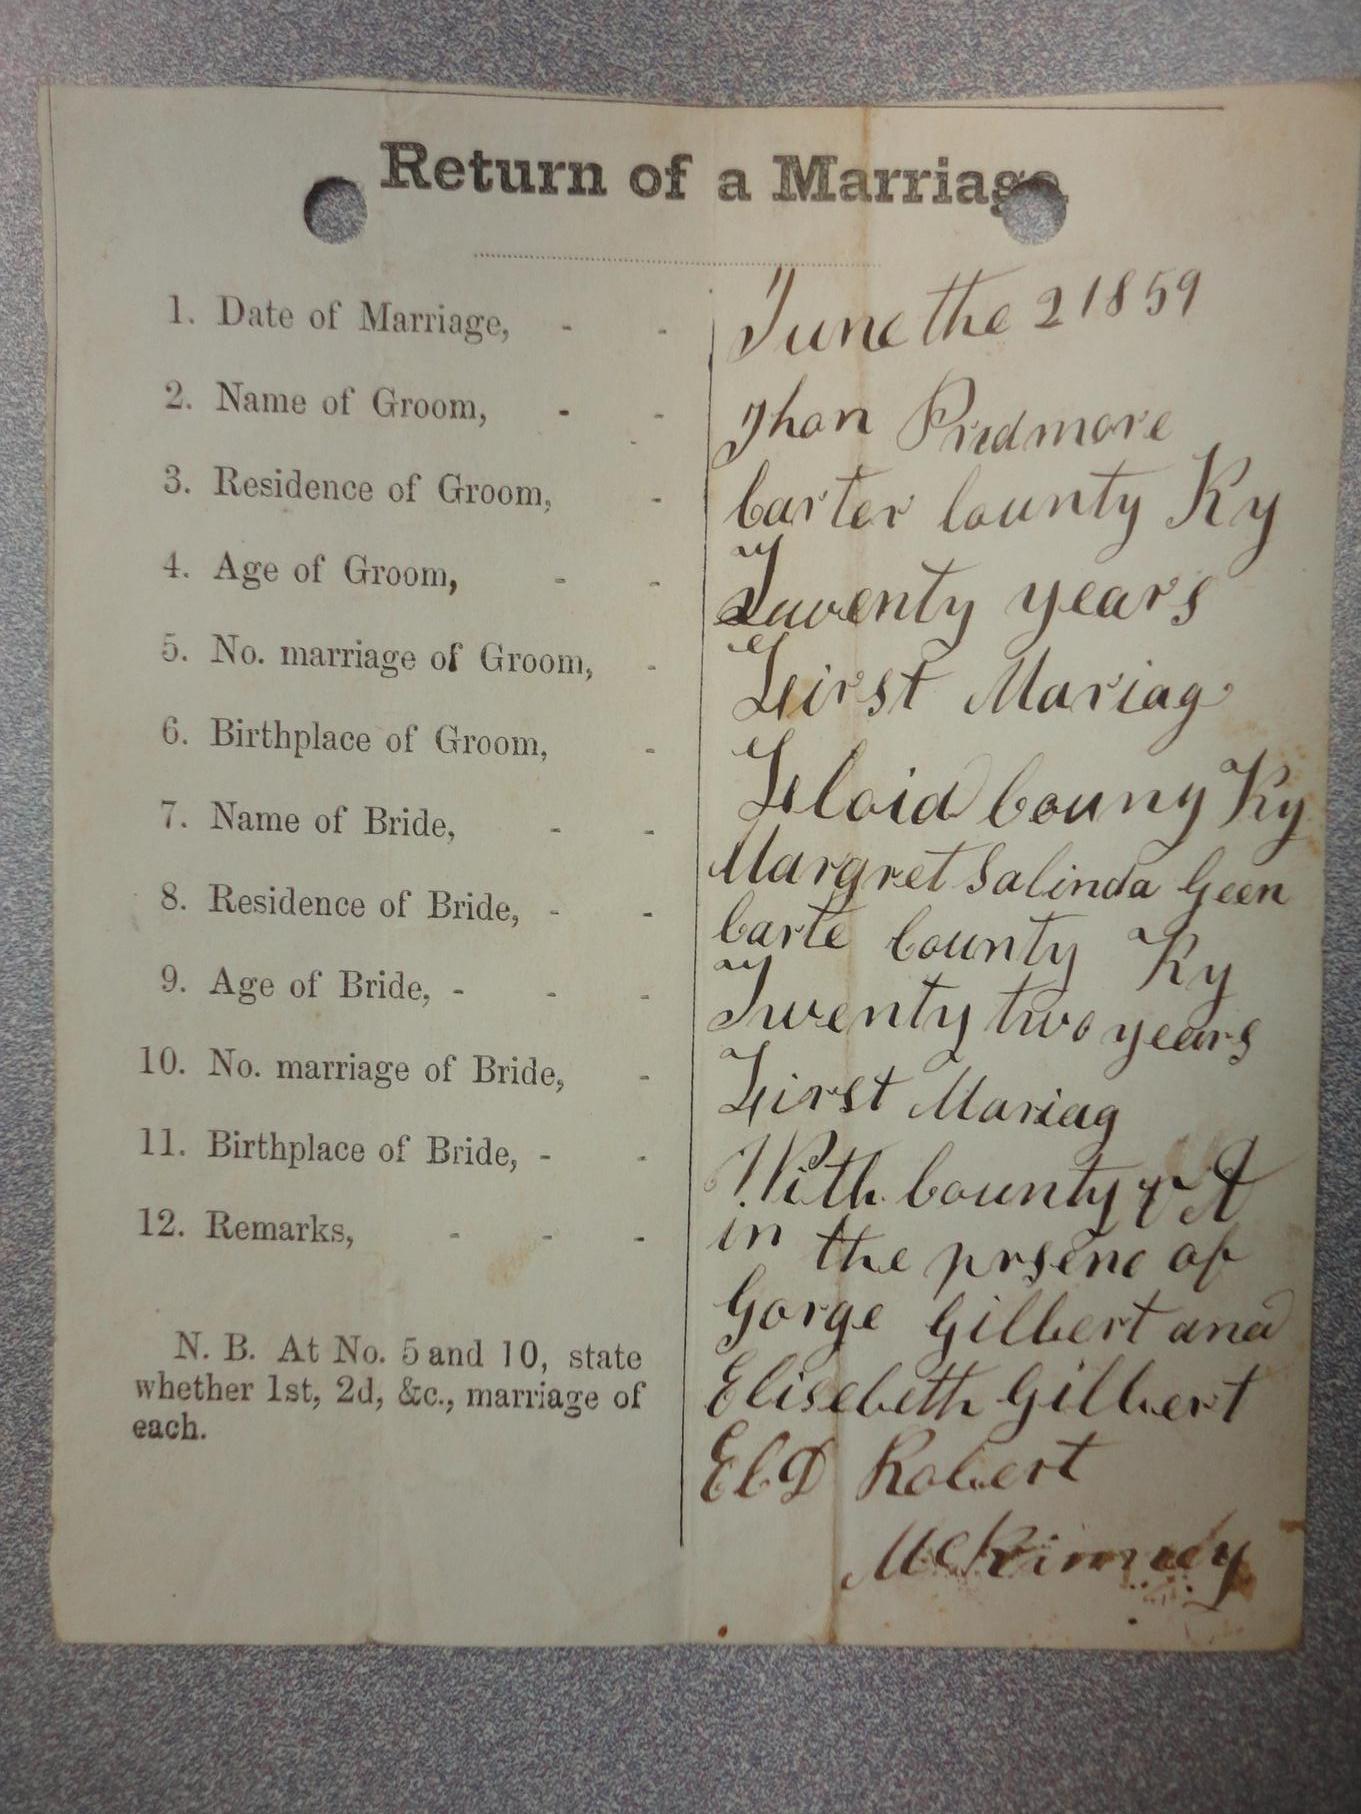 Return of a Marriage
1. Date of Marriage, - - June the 2 1859
2. Name of Groom, - - Jhon Pridmore
3. Residence of Groom, - Carter County Ky
4. Age of Groom, - - Twenty years
5. No. marriage of Groom, - First Mariag
6. Birthplace of Groom, - Floid Couny Ky
7. Name of Bride, - - Margret Salinda Geen
8. Residence of Bride, - - Carte County Ky
9. Age of Bride, - - - Twenty two years
10. No. marriage of Bride, - First Mariag
11. Birthplace of Bride, - - With County VA
12. Remarks, - - - in the prsenc of
Gorge Gilbert and
N. B. At No. 5 and 10, state
whether 1st, 2d, &c., marriage of
each.
Elisebeth Gilbert
Robert
McKinney